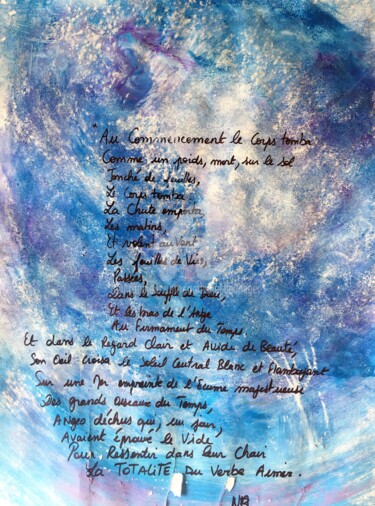 "Au Commencement le Corps tomba
Comme un poids, mort, sur le sol
Jonché de feuilles,
Le Corps tomba.
La Chute emporta
Les matins,
Et volent au Vent
Les feuilles de Vies,
Passées,
Dans le Souffle de Dieu,
Et les bras de l'Ange
Au Firmament du Temps.
Et dans le Regard Clair et Avide de Beauté,
Son Oeil croisa le Soleil Central Blanc et Flamboyant
Sur une Mer empreinte de l'Ecume majestueuse
Des grands Oiseaux du Temps,
Anges déchus qui, un jour,
Avaient éprouvé le Vide
Pour Ressentir dans leur Chair
La TOTALITE Du Verbe Aimer.